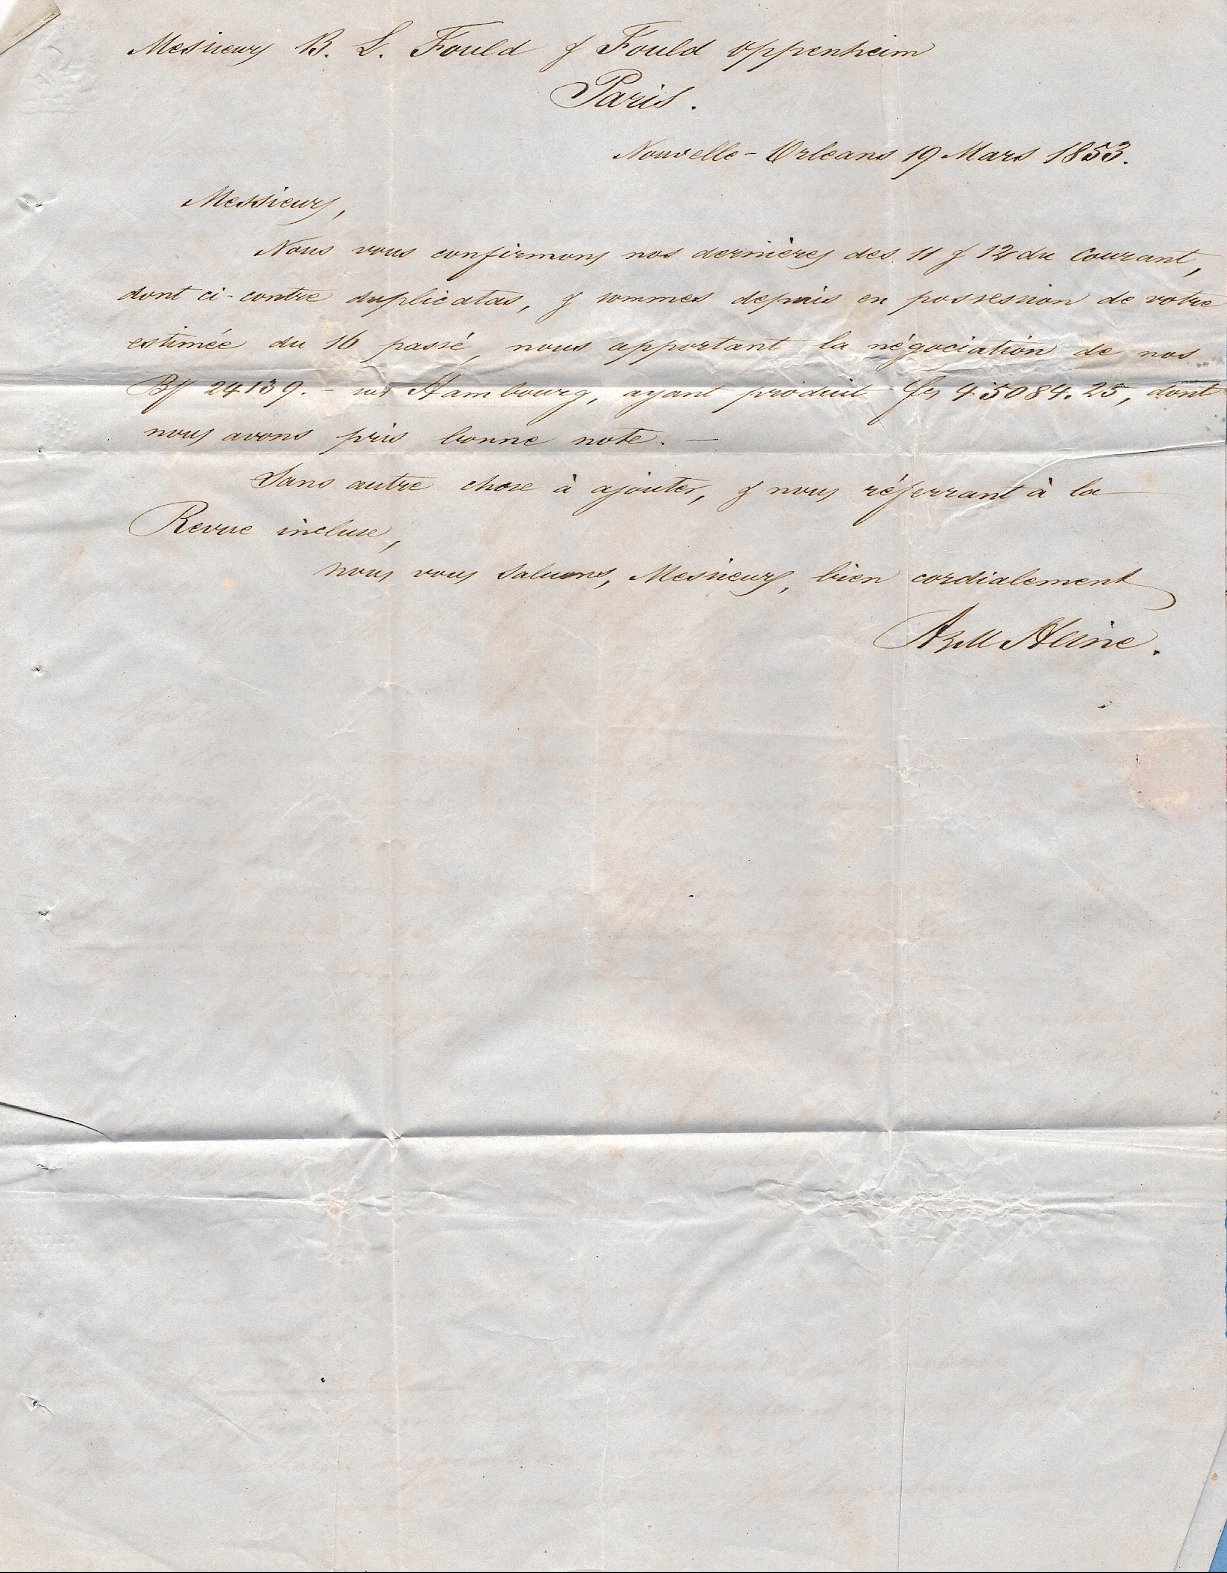 Messieurs B. L. Fould & Fould Oppenheim
Paris.
Nouvelle-Orleans 19 Mars 1853.
Messieurs,
Nous vous confirmons nos dernières des 11 & 12 du Courant,
dont ci-contre duplicatas, & sommes depuis en possession de votre
estimée du 16 passé, nous apportant la négociation de nos
24139.- sur Hambourg, ayant produit fs 45084.25, dont
nous avons pris bonne note. —
Sans autre chose à ajouter, & nous réferrant à la
Revue incluse,
nous vous saluons, Messieurs, bien cordialement
A & M Heine.